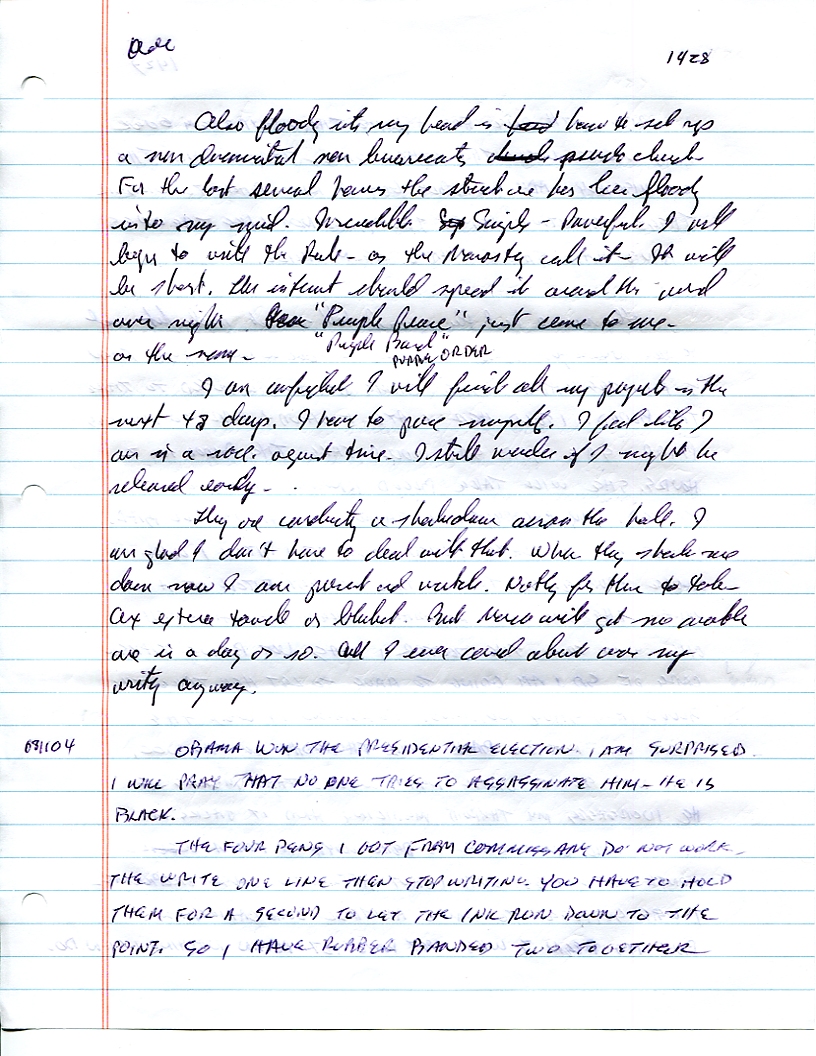 1428
Also floody into my head is how to set up
a non non church
For the last several hours the structure has been floody
into my mind. Incredible Simple - Powerful. I will
begin to write the Rule - as the call it - It will
be short. The internet should spread it around the world
over night. "Purple Peace" just came to me -
as the name - "Purple Band"
PURPLE ORDER
I am I will finish all my projects in the
next 48 days. I have to pace myself. I feel like I
am in a race against time. I still wonder if I might be
released early -
They are conducting a shakedown across the hall. I
am glad I don't have to deal with that. When they shake me
down now I am present and watch. Nothing for them to take
extra towels or blanket. But will get no
one in a day or so. All I ever cared about was my
writing anyway.
081104
OBAMA WON THE PRESIDENTIAL ELECTION. I AM SURPRISED.
I WILL PRAY THAT NO ONE TRIES TO ASSASSINATE HIM - HE IS
BLACK.
THE FOUR PENS I GOT FROM COMMISSARY DO NOT WORK.
THE WRITE ONE LINE THEN STOP WRITING. YOU HAVE TO HOLD
THEM FOR A SECOND TO LET THE INK RUN DOWN TO THE
POINT. SO I HAVE RUBBER BANDED TWO TOGETHER